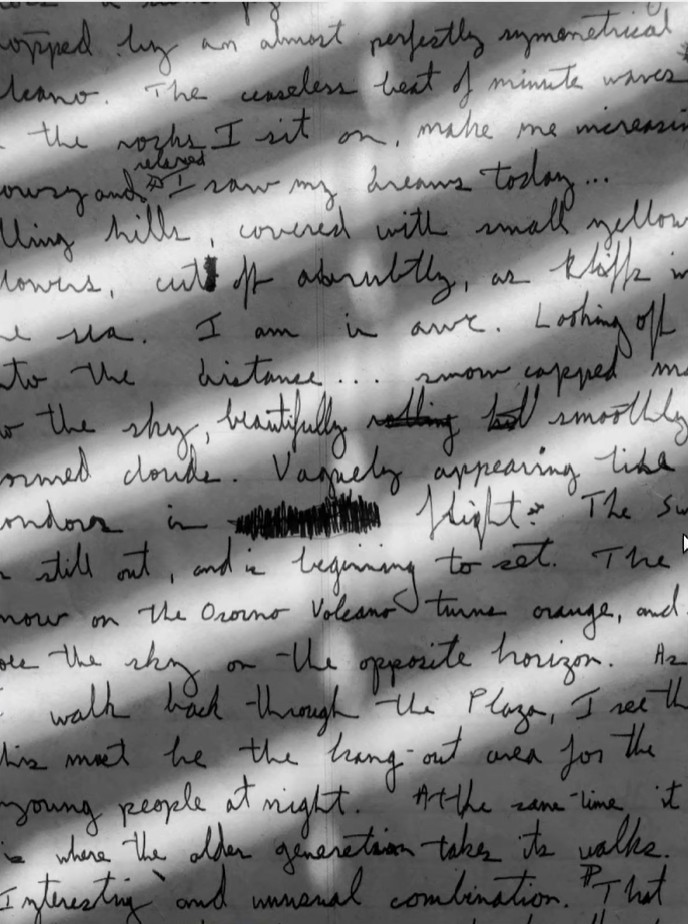 opped by an almost perfectly symmetrical
lcano. The ceaseless beat of minute waves
the rocks I sit on, make me increasin
relaxed
owsy and I saw my dreams today...
lling hills, covered with small yellow
lowers, cut off abrubtly, as kliffs in
e sea. I am in awe. Looking off
nto the distance... snow capped mo
w the sky, beautifully rolling but smoothly
ormed clouds. Vaguely appearing like
ondors in flight. The su
still out, and is beginning to set. The
now on the Osorno Volcano turns orange, and
oes the sky on the opposite horizon. As
I walk back through the Plaza, I see th
his must be the hang-out area for the
young people at night. At the same time it
is where the older generation takes its walks.
Interesting and unusual combination. That